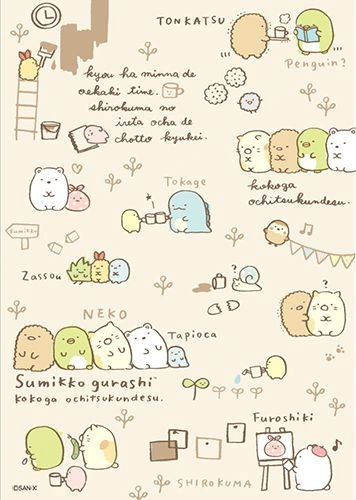 TONKATSU
Penguin?
kyou ha minna de
oekaki time.
shirokuma no
ireta ocha de
chotto kyukei.
Tokage
kokoga
ochitsukundesu.
Sumikko
Zassou
?
?
NEKO
Tapioca
Sumikko gurashi
kokoga ochitsukundesu.
Furoshiki
SHIROKUMA
©SAN-X